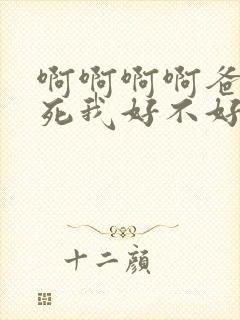 啊啊啊啊爸
死我好不好
十二顔